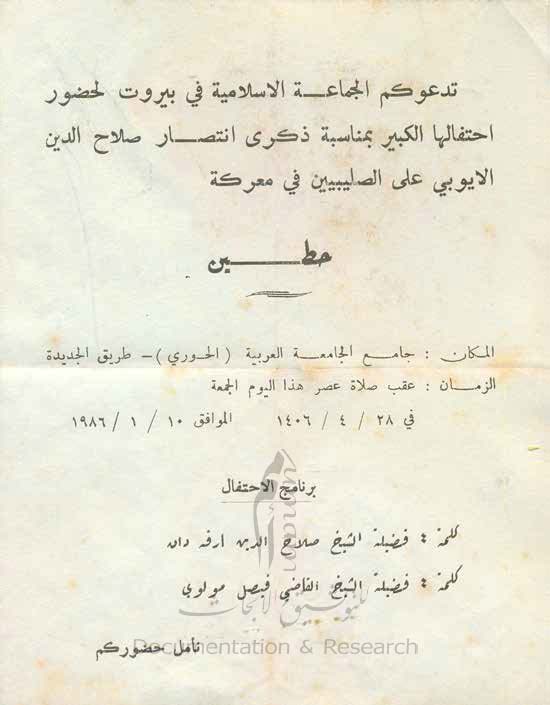 تدعوكم الجماعة الاسلامية في بيروت لحضور
احتفالها الكبير بمناسبة ذكرى انتصار صلاح الدين
الايوبي على الصليبيين في معركة
حطين
المكان : جامع الجامعة العربية (الحوري) – طريق الجديدة
الزمان : عقب صلاة عصر هذا اليوم الجمعة
في ٢٨ / ٤ / ١٤٠٦ الموافق ١٠ / ١ / ١٩٨٦
برنامج الاحتفال
كلمة فضيلة الشيخ صلاح الدين ارقه دان
كلمة فضيلة الشيخ القاضي فيصل مولوي
نأمل حضوركم
للتوثيق الأبحاث
Documentation & Research